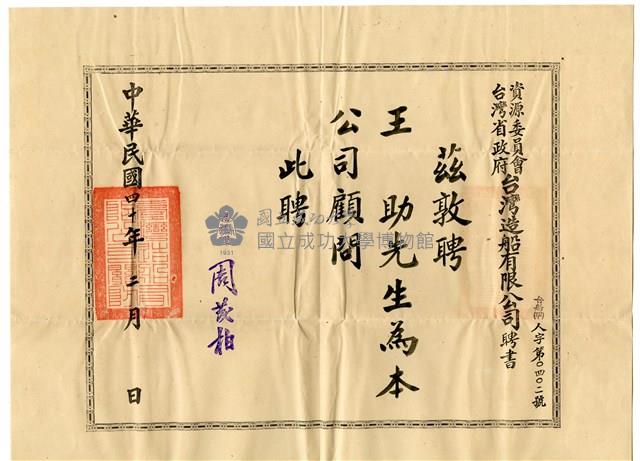 資源委員會
台灣省政府
台灣造船有限公司聘書
人字第〇四〇二號
茲敦聘
王助先生為本
公司顧問
此聘
周茂柏
中華民國四十年二月 日
國立成功大學
國立成功大學博物館
1931